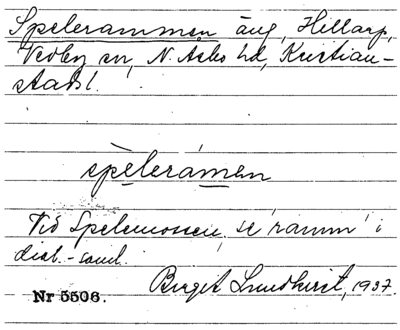 Spelerammen äng, Hillarp,
Vedby sn, N. Åsbo hd, Kristian-
stads l.
spèlerámen
Vid Spelemossen, se 'ramm' i
dial.-saml.
Birgit Lundkvist, 1937.
Nr 5506.